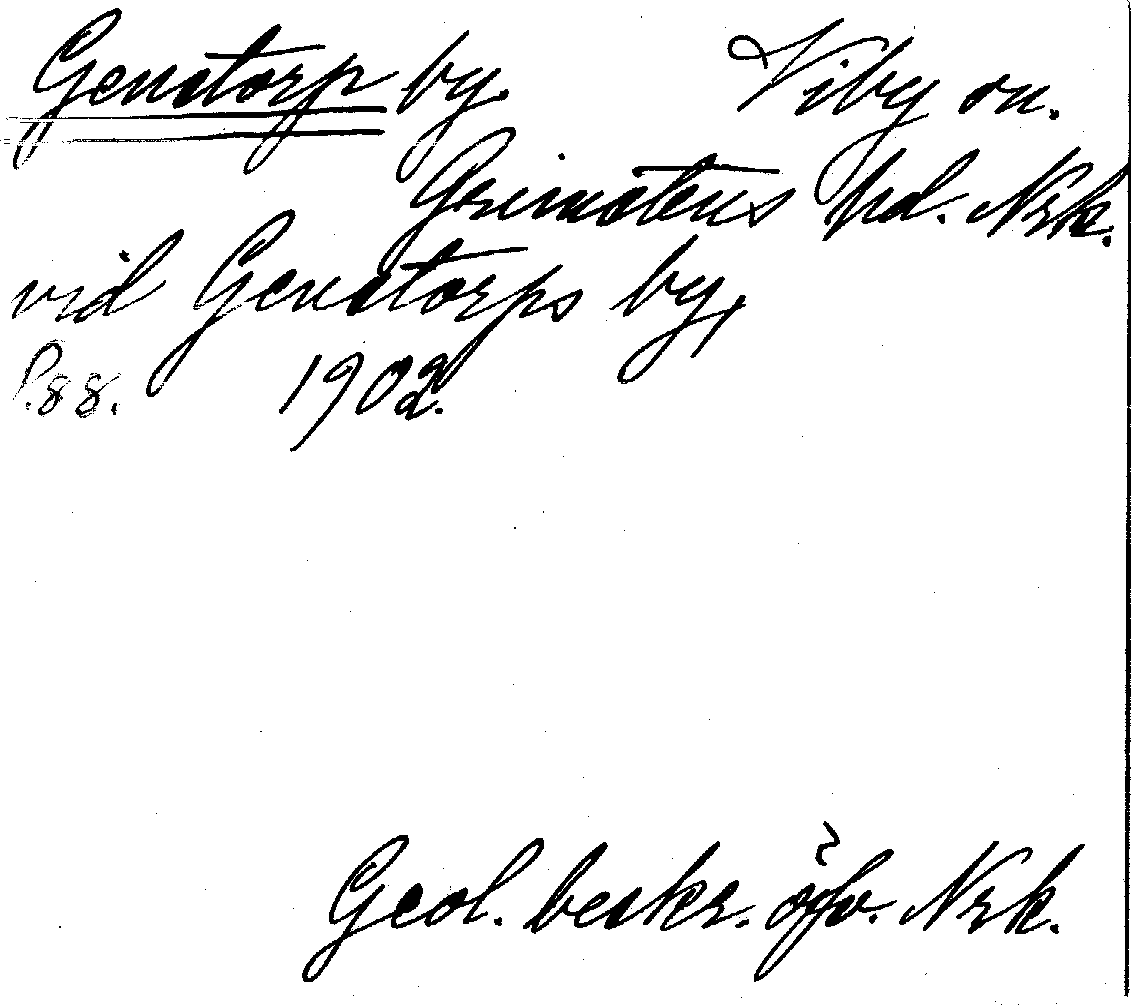 Genstorp by. Viby sn.
Grimstens hd. Nrk.
vid Genstorps by,
P.88. 1902.
Geol. beskr. öfv. Nrk.